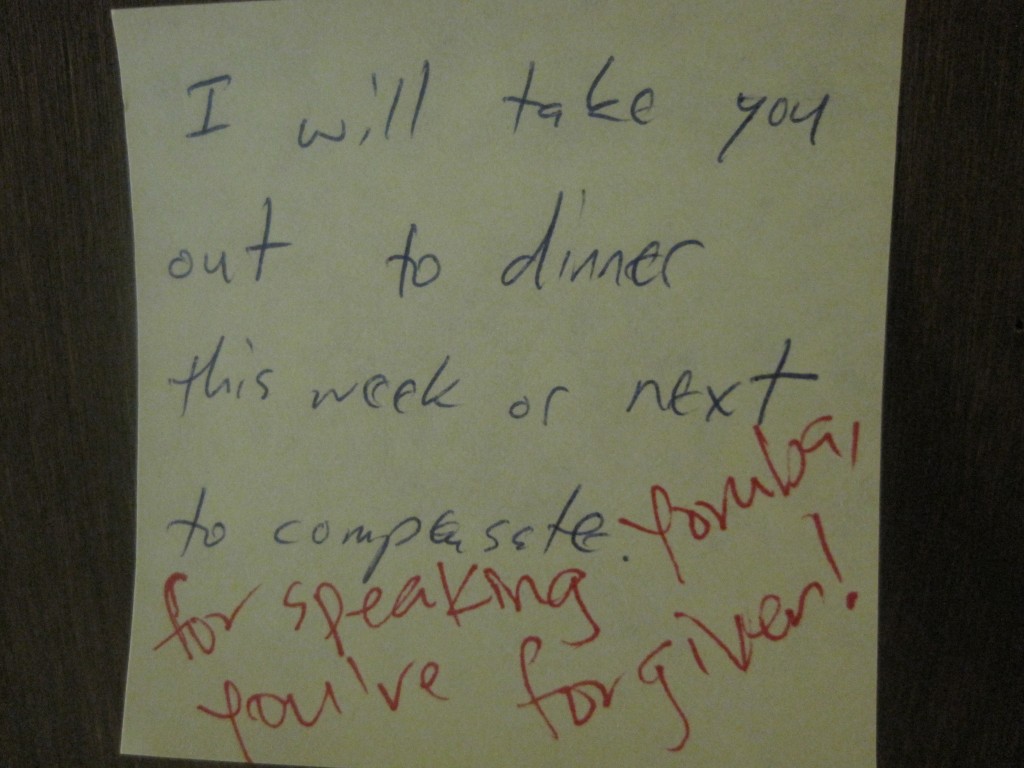 I will take you
out to dinner
this week or next
to compensate. Yoruba,
for speaking
you've forgiven!